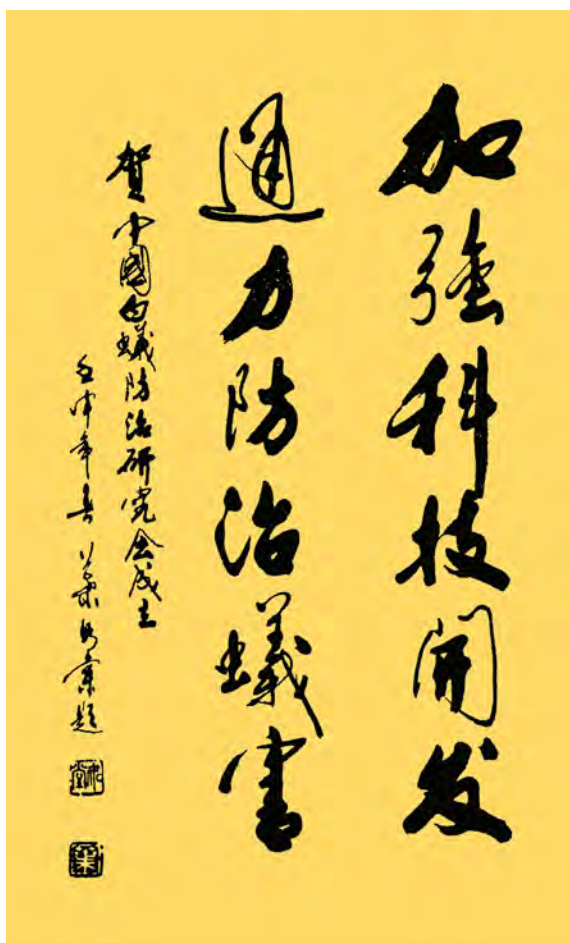 加強科技開发
通力防治蟻害
賀中國白蟻防治研究会成立
壬申年春 葉如棠題